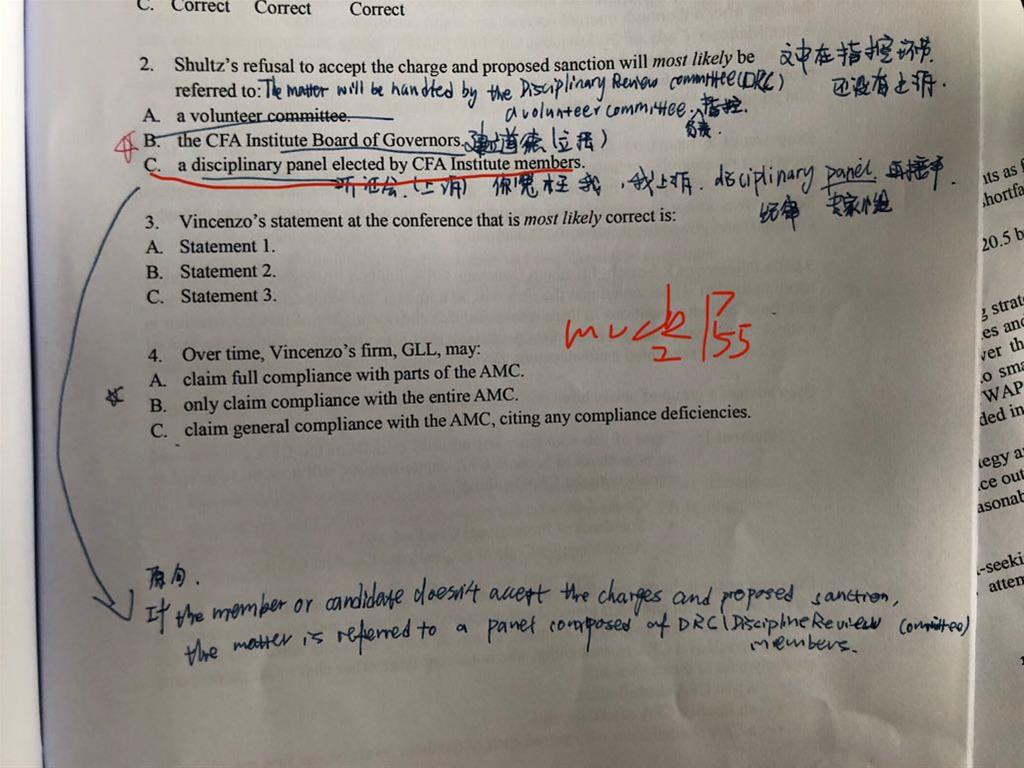 C. Correct Correct Correct
2. Shultz's refusal to accept the charge and proposed sanction will most likely be
文中在指控环节
referred to: The matter will be handled by the Disciplinary Review committee (DRC)
还没有上诉.
A. a volunteer committee.
a volunteer committee. 指控
B. the CFA Institute Board of Governors. 建立道德(立法)
C. a disciplinary panel elected by CFA Institute members.
听证会(上诉) 你冤枉我,我上诉. disciplinary panel
纪律 专家小组
3. Vincenzo's statement at the conference that is most likely correct is:
A. Statement 1.
B. Statement 2.
C. Statement 3.
mock
2
55
4. Over time, Vincenzo's firm, GLL, may:
A. claim full compliance with parts of the AMC.
B. only claim compliance with the entire AMC.
C. claim general compliance with the AMC, citing any compliance deficiencies.
原句.
If the member or candidate doesn't accept the charges and proposed sanction,
the matter is referred to a panel composed of DRC (Discipline Review Committee)
members.
nts as
shortfa
20.5 b
g strat
es and
ver th
o sma
WAP
ded in
tegy a
ce out
asonab
-seeki
atten